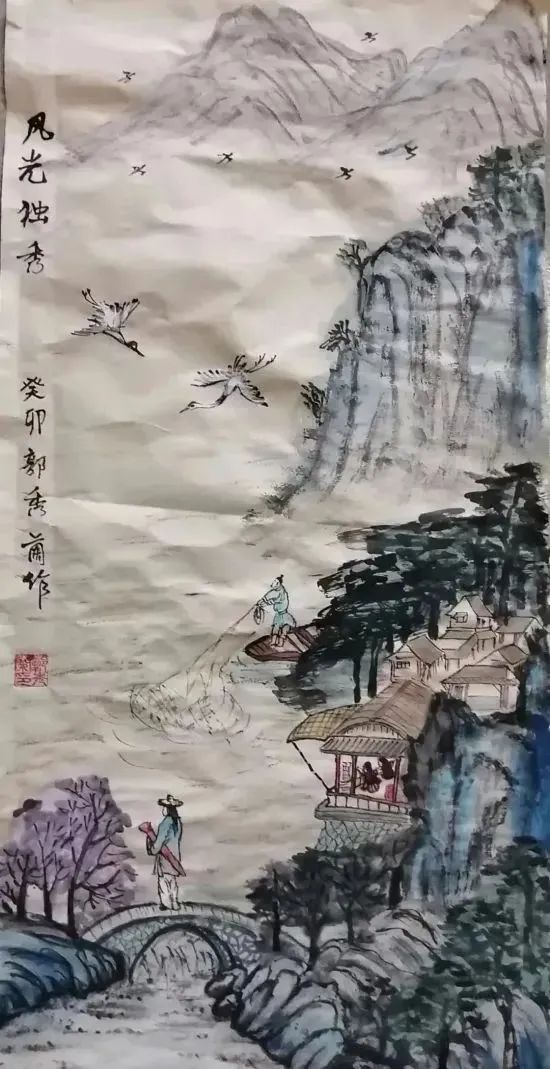 风光独秀
癸卯郭秀蘭作